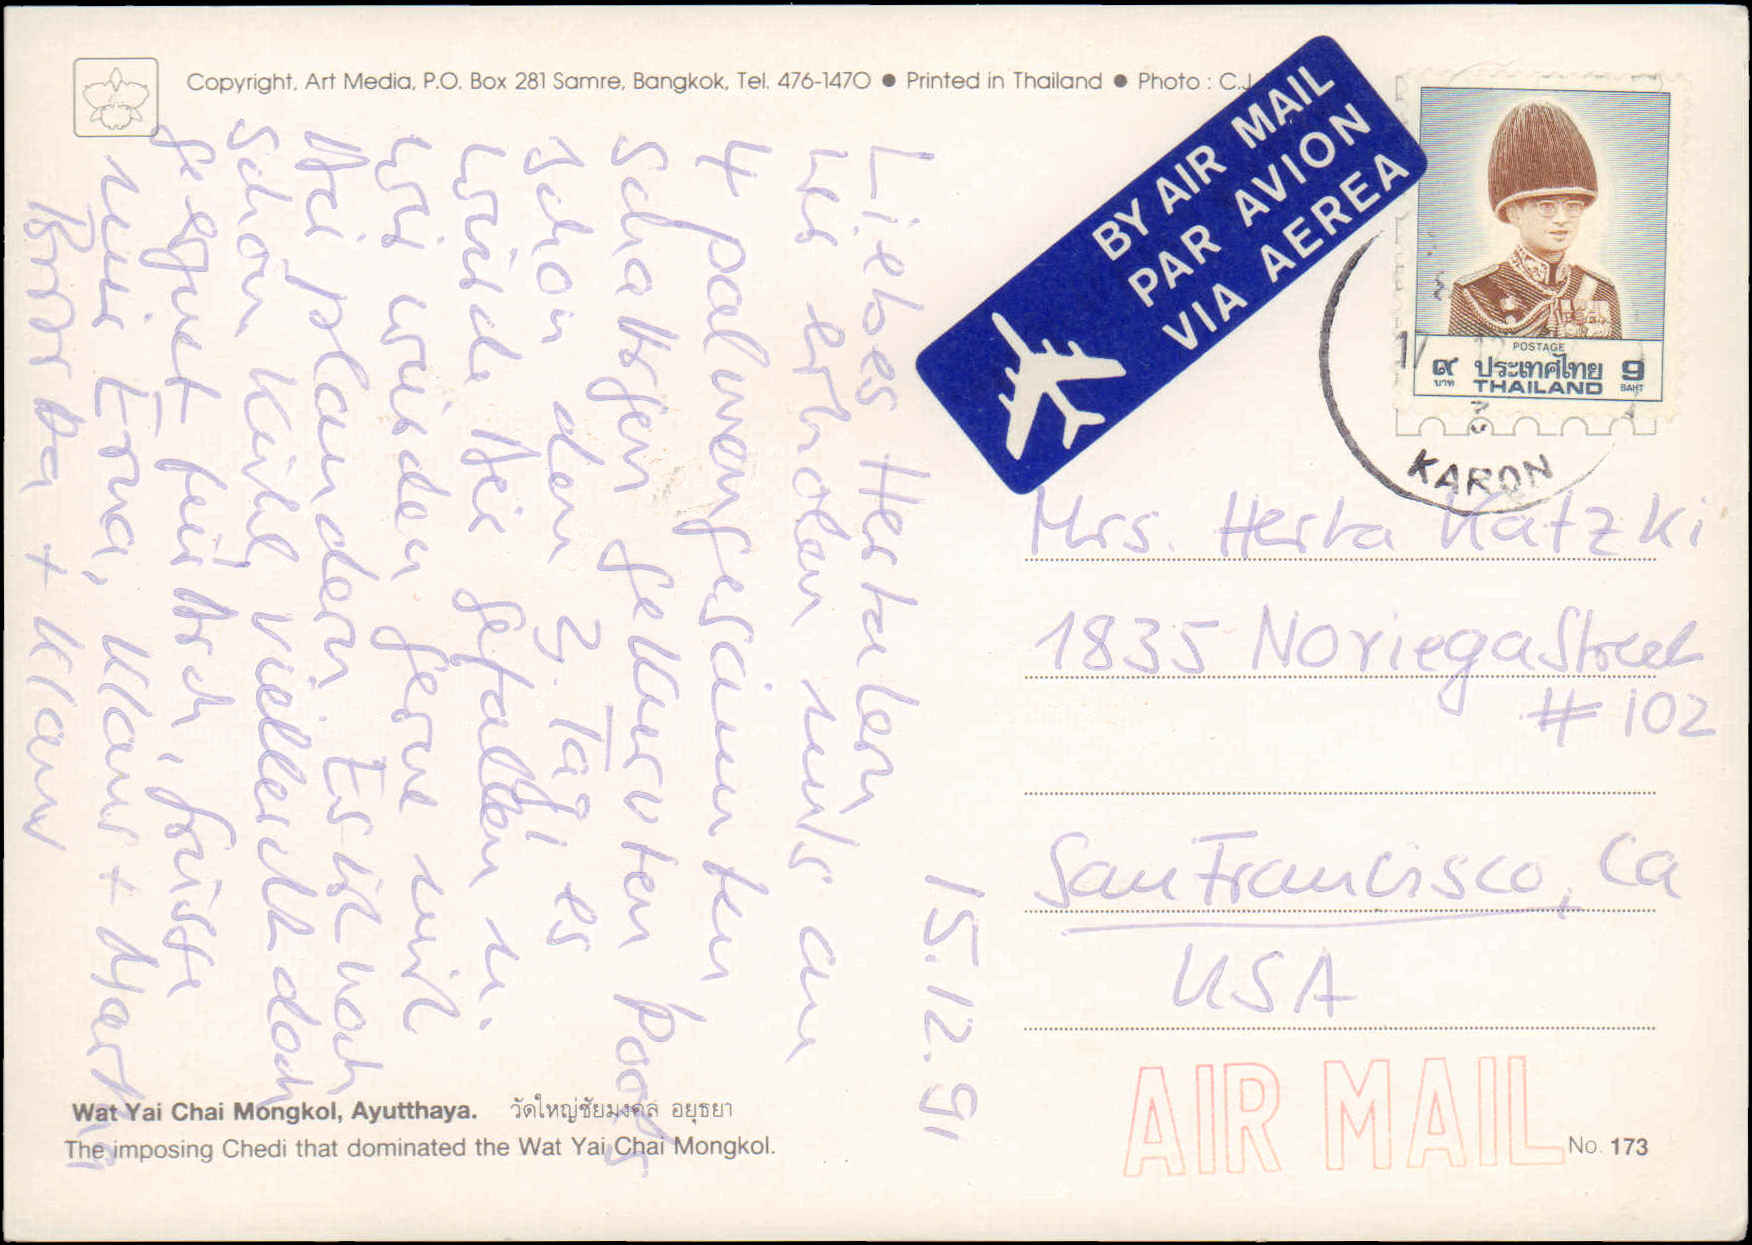 Copyright. Art Media, P.O. Box 281 Samre, Bangkok, Tel. 476-1470 ● Printed in Thailand ● Photo : C.J
BY AIR MAIL
PAR AVION
VIA AEREA
POSTAGE
๙ ประเทศไทย 9
บาท THAILAND BAHT
KARON
15.12.91
Liebes Hertalein
wir erholen uns am
4 palmengesäumten
schattigen gekurvten Pool
schon den 3. Tag! es
würde Dir gefallen u.
wir würden gerne mit
Dir plaudern. Es ist noch
schön kühl vielleicht doch
geeignet für Dich, Grüsse
von Erna, Klaus + Martin
+ Klaus
Mrs. Herta Katzki
1835 Noriega Street
# 102
San Francisco, Ca
USA
AIR MAIL
Wat Yai Chai Mongkol, Ayutthaya. วัดใหญ่ชัยมงคล อยุธยา
The imposing Chedi that dominated the Wat Yai Chai Mongkol.
No. 173